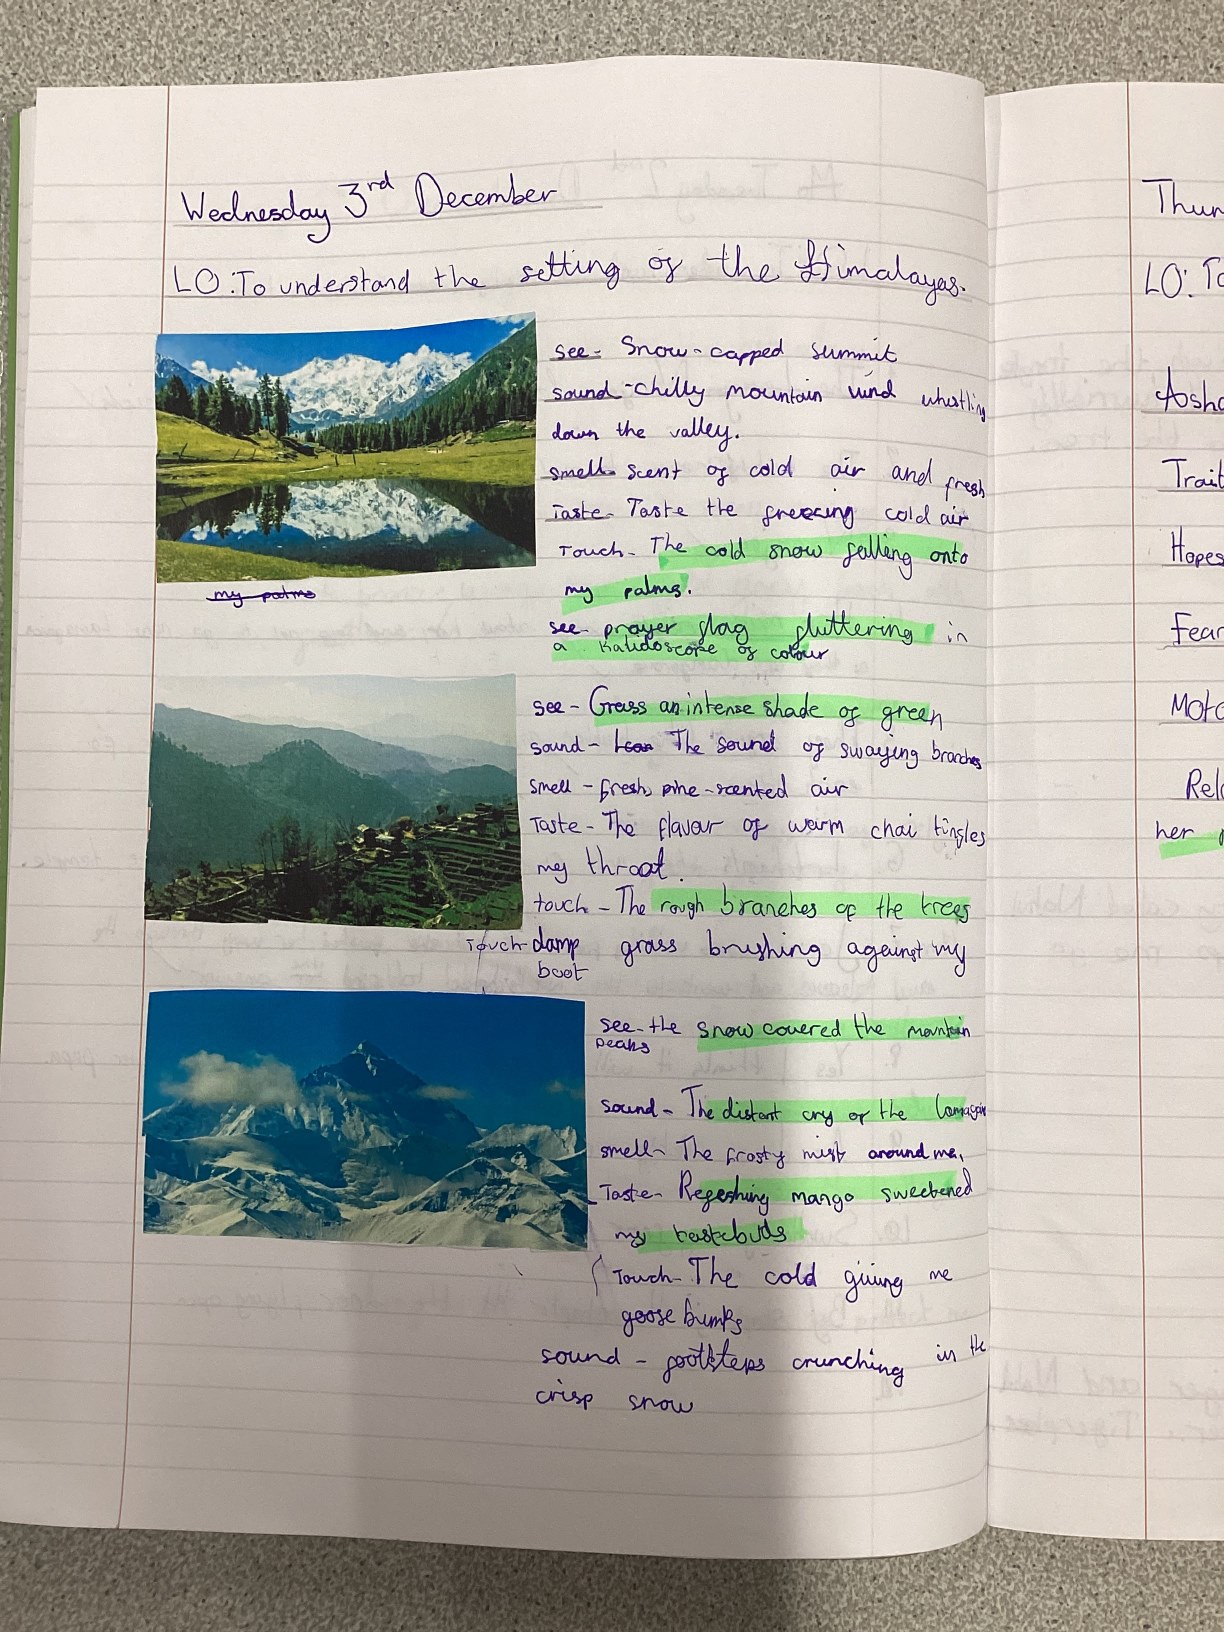 Wednesday 3rd December
LO: To understand the setting of the Himalayas.
see- Snow-capped summit
sound-chilly mountain wind whistling
down the valley.
smell- scent of cold air and fresh
Taste- Taste the freezing cold air
Touch- The cold snow falling onto
my palms.
my palms
see- prayer flag fluttering in
a kalidoscope of colour
see- Grass an intense shade of green
sound- The sound of swaying branches
smell- fresh, pine-scented air
Taste- The flavour of warm chai tingles
my throat.
touch- The rough branches of the trees
Touch- damp grass brushing against my
boot
see- the snow covered the mountain
peaks
sound- The distant cry of the
smell- The frosty mist around me.
Taste- Refeshing mango sweetened
my tastebuds
Touch- The cold giving me
goose bumps
sound - footsteps crunching in the
crisp snow
Thur
LO: To
Asha
Trait
Hopes
Fear
Moto
Rela
her